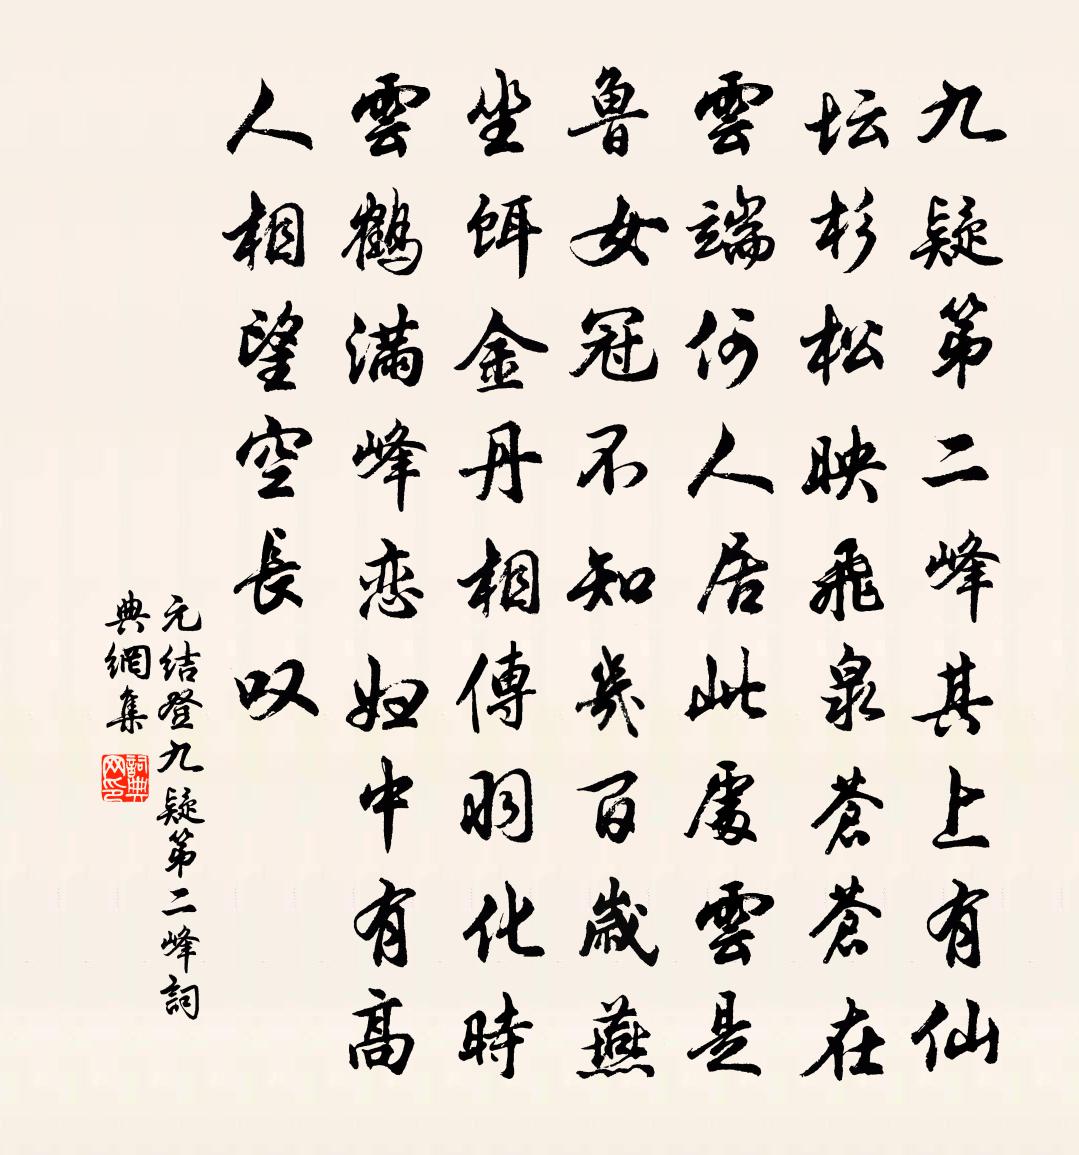 九疑第二峰其上有仙
坛杉松映飛泉蒼蒼在
雲端何人居此處雲是
魯女冠不知幾百歲燕
坐餌金丹相傳羽化時
雲鶴滿峰恋妇中有高
人相望空長叹
元结登九疑第二峰詞
典網集
詞典网印